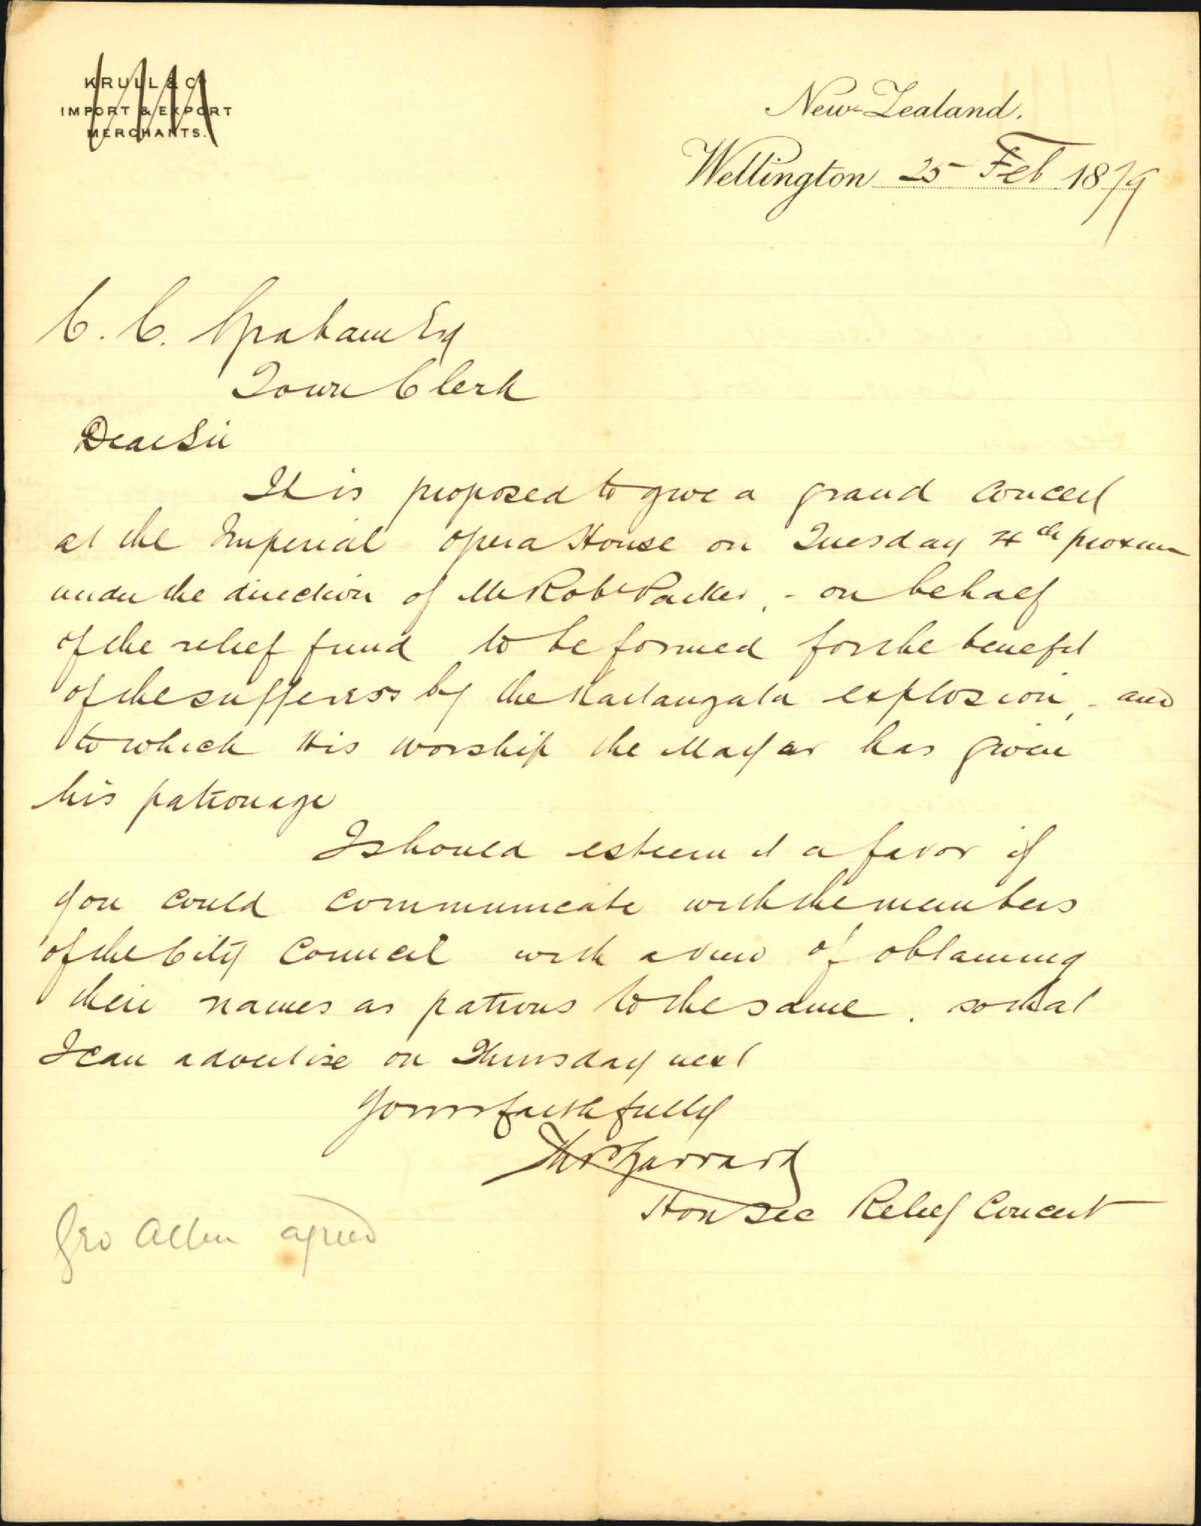 KRULL & Co
IMPORT & EXPORT
MERCHANTS.
New Zealand.
Wellington 25 Feb 1879
C. C. Graham Esq
Town Clerk
Dear Sir
It is proposed to give a grand concert
at the Imperial Opera House on Tuesday 4th proximo
under the direction of Mr Robt Parker, - on behalf
of the relief fund to be formed for the benefit
of the sufferers by the Kaitangata explosion, - and
to which His worship the Mayor has given
his patronage
I should esteem it a favor if
you could communicate with the members
of the City Council with a view of obtaining
their names as patrons to the same, so that
I can advertise on Thursday next
Yours faithfully
Thos Garrard
Hon Sec Relief Concert
Geo Allen agreed